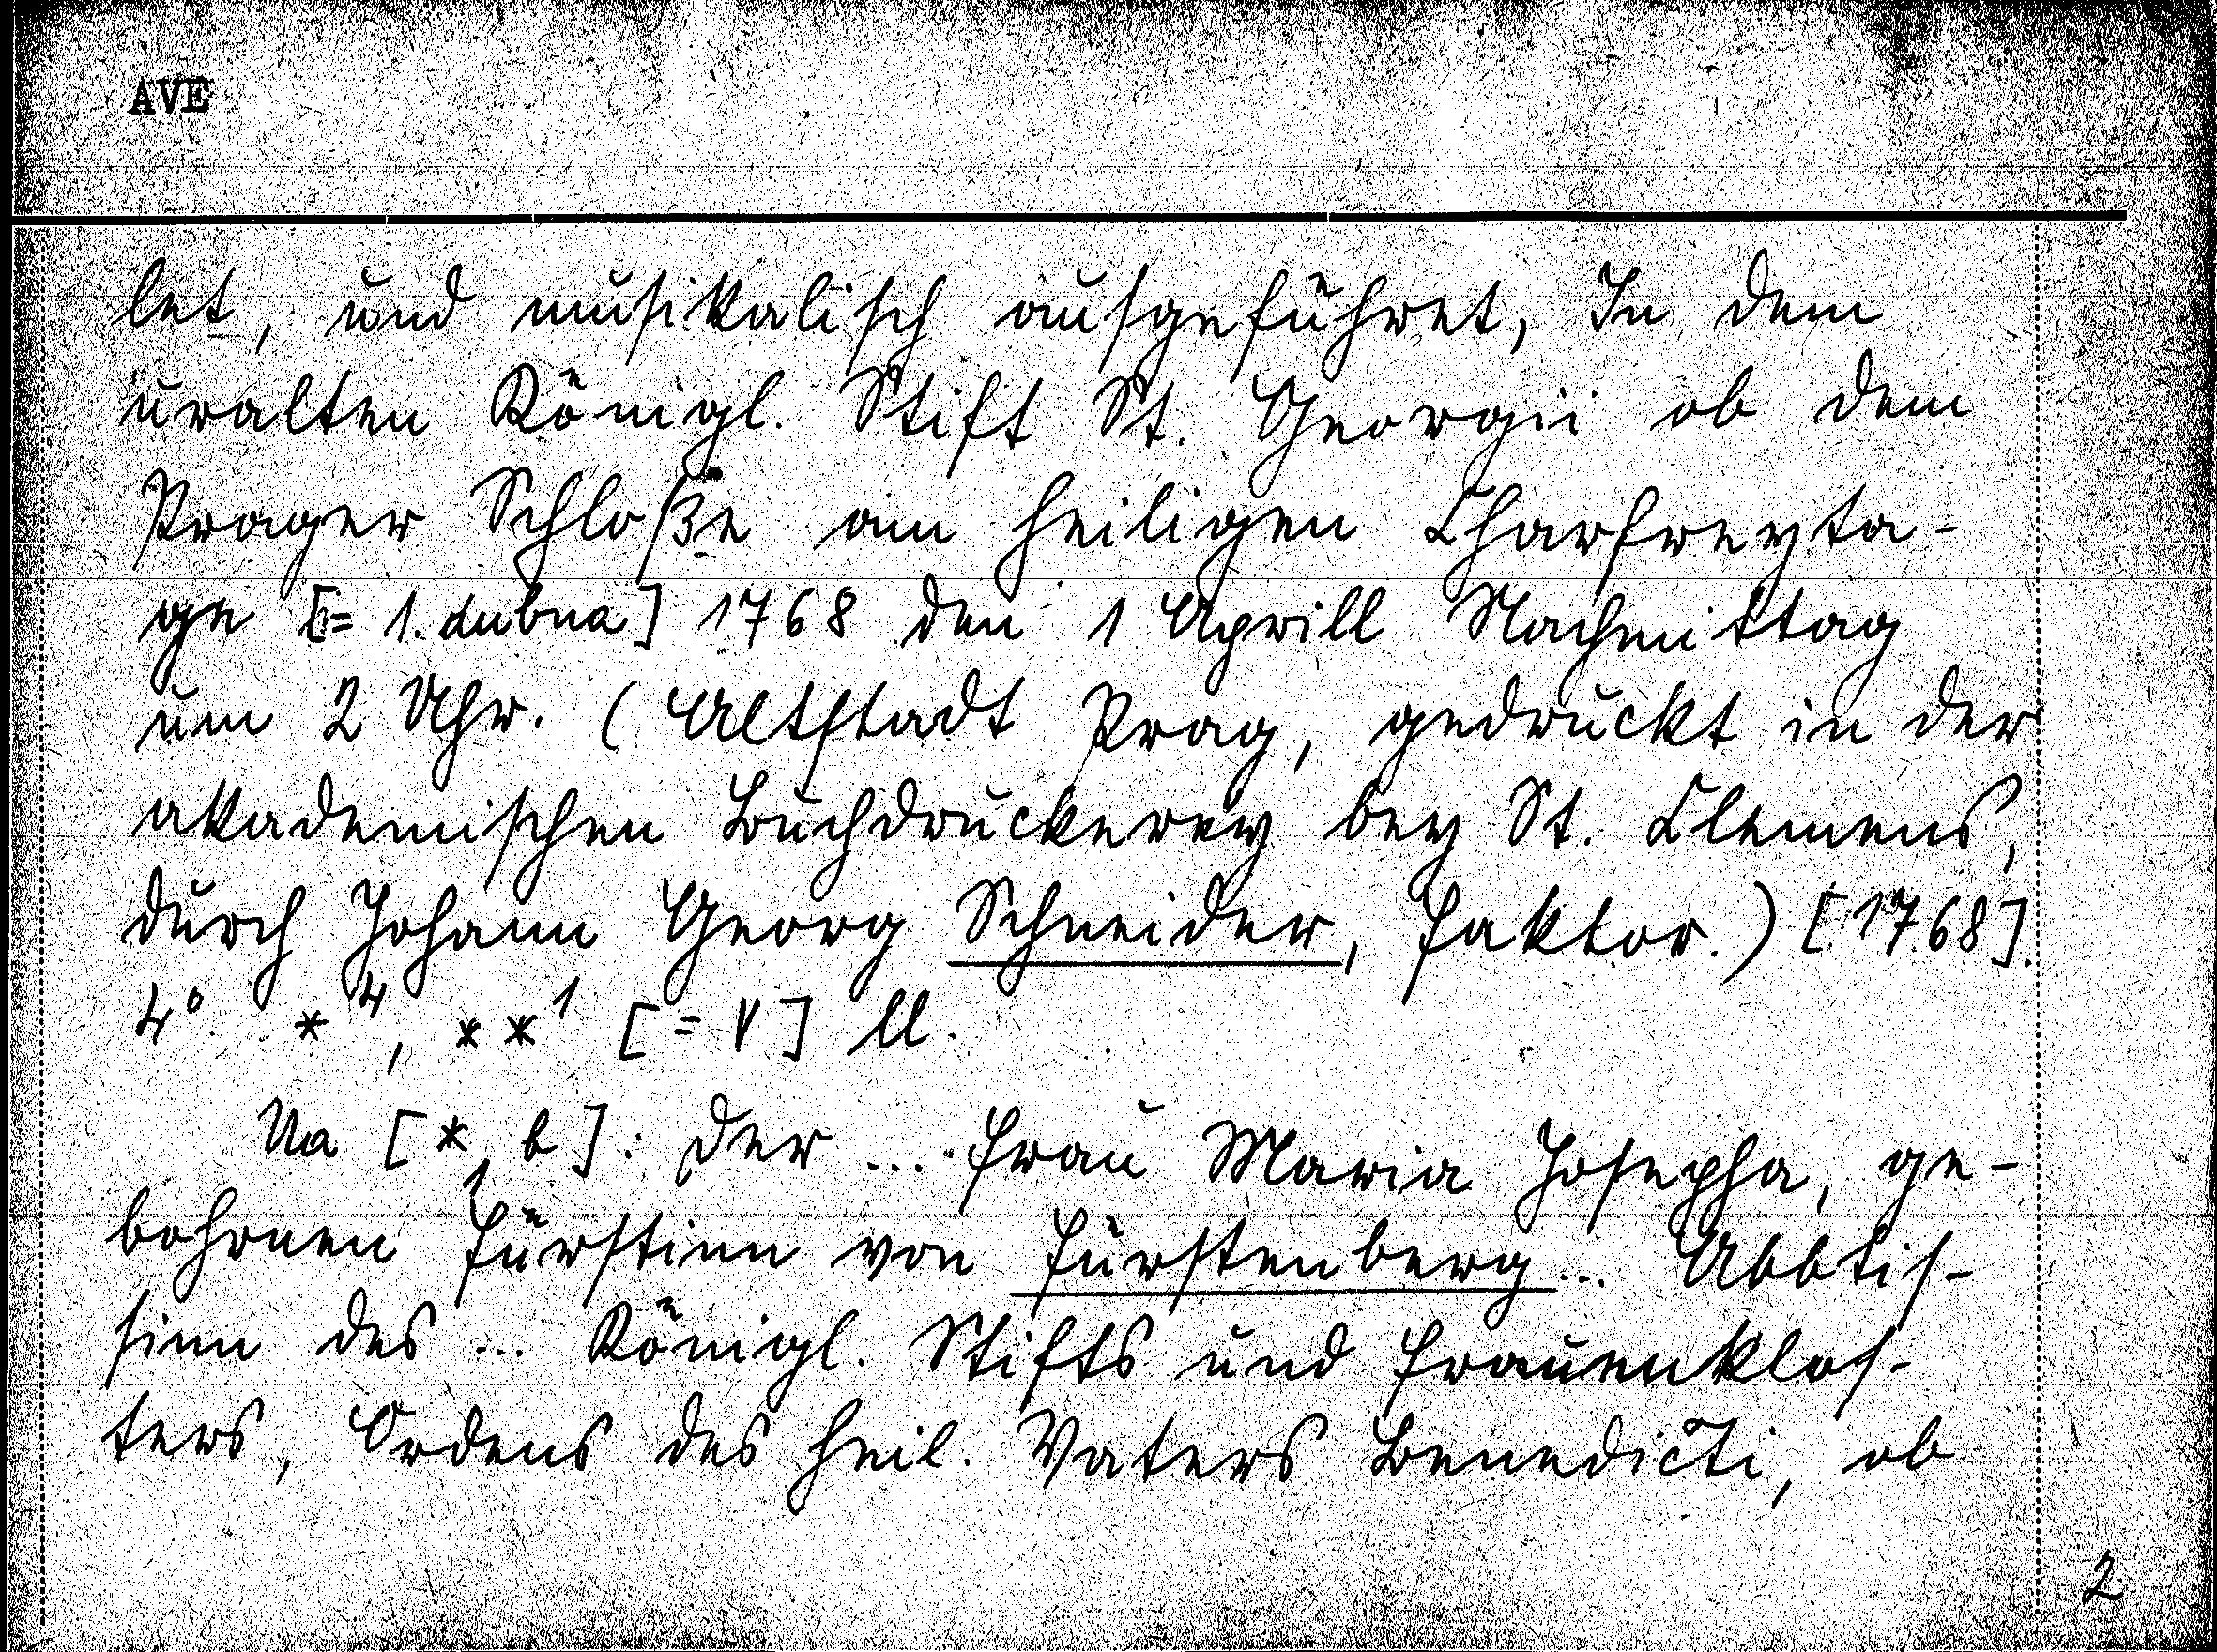 AVE
let, und musikalisch ausgeführet, In dem
uralten Königl. Stift St. Georgii ob dem
Prager Schloße am heiligen Charfreyta-
ge [= 1. dubna] 1768 den 1 Aprill Nachmittag
um 2 Uhr. (Altstadt Prag, gedruckt in der
akademischen Buchdruckerey bey St. Clemens,
durch Johann Georg Schneider, Faktor.) [1768].
4° *⁴, **¹ [= V] ll.
Na [*₁b]: Der ... Frau Maria Josepha, ge-
bohrnen Fürstinn von Fürstenberg ... Abbtis-
sinn des ... Königl. Stifts und Frauenklos-
ters, Ordens des heil. Vaters Benedicti, ob
2